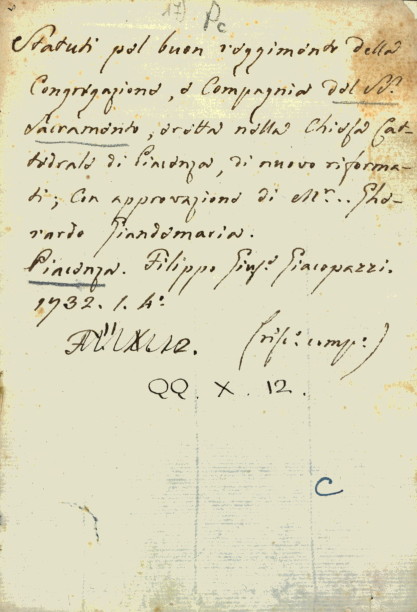 17) Pc
Statuti pel buon reggimento della
Congregazione, e Compagnia del SS.
Sacramento, eretta nella Chiesa Cat-
tedrale di Piacenza, di nuovo riforma-
ti; con approvazione di Mr.. Ghe-
rardo Zandemaria.
Piacenza. Filippo Gius.e Giacopazzi.
1732. 1. 4.o
(
QQ. X. 12.
C